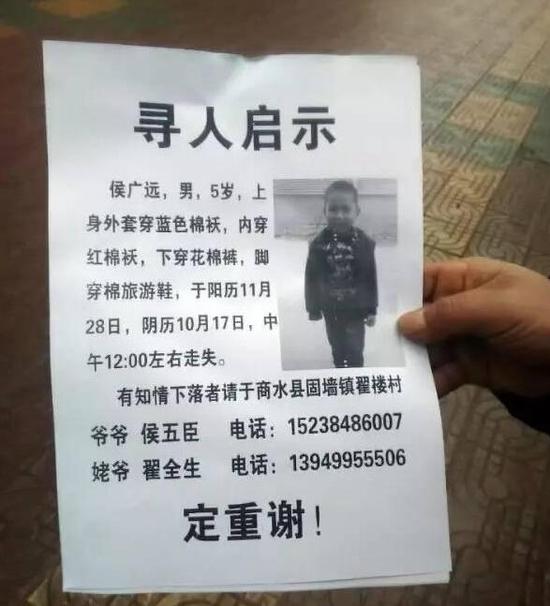 寻人启示
侯广远，男，5岁，上
身外套穿蓝色棉袄，内穿
红棉袄，下穿花棉裤，脚
穿棉旅游鞋，于阳历11月
28日，阴历10月17日，中
午12:00左右走失。
有知情下落者请于商水县固墙镇翟楼村
爷爷 侯五臣 电话：15238486007
姥爷 翟全生 电话：13949955506
定重谢！